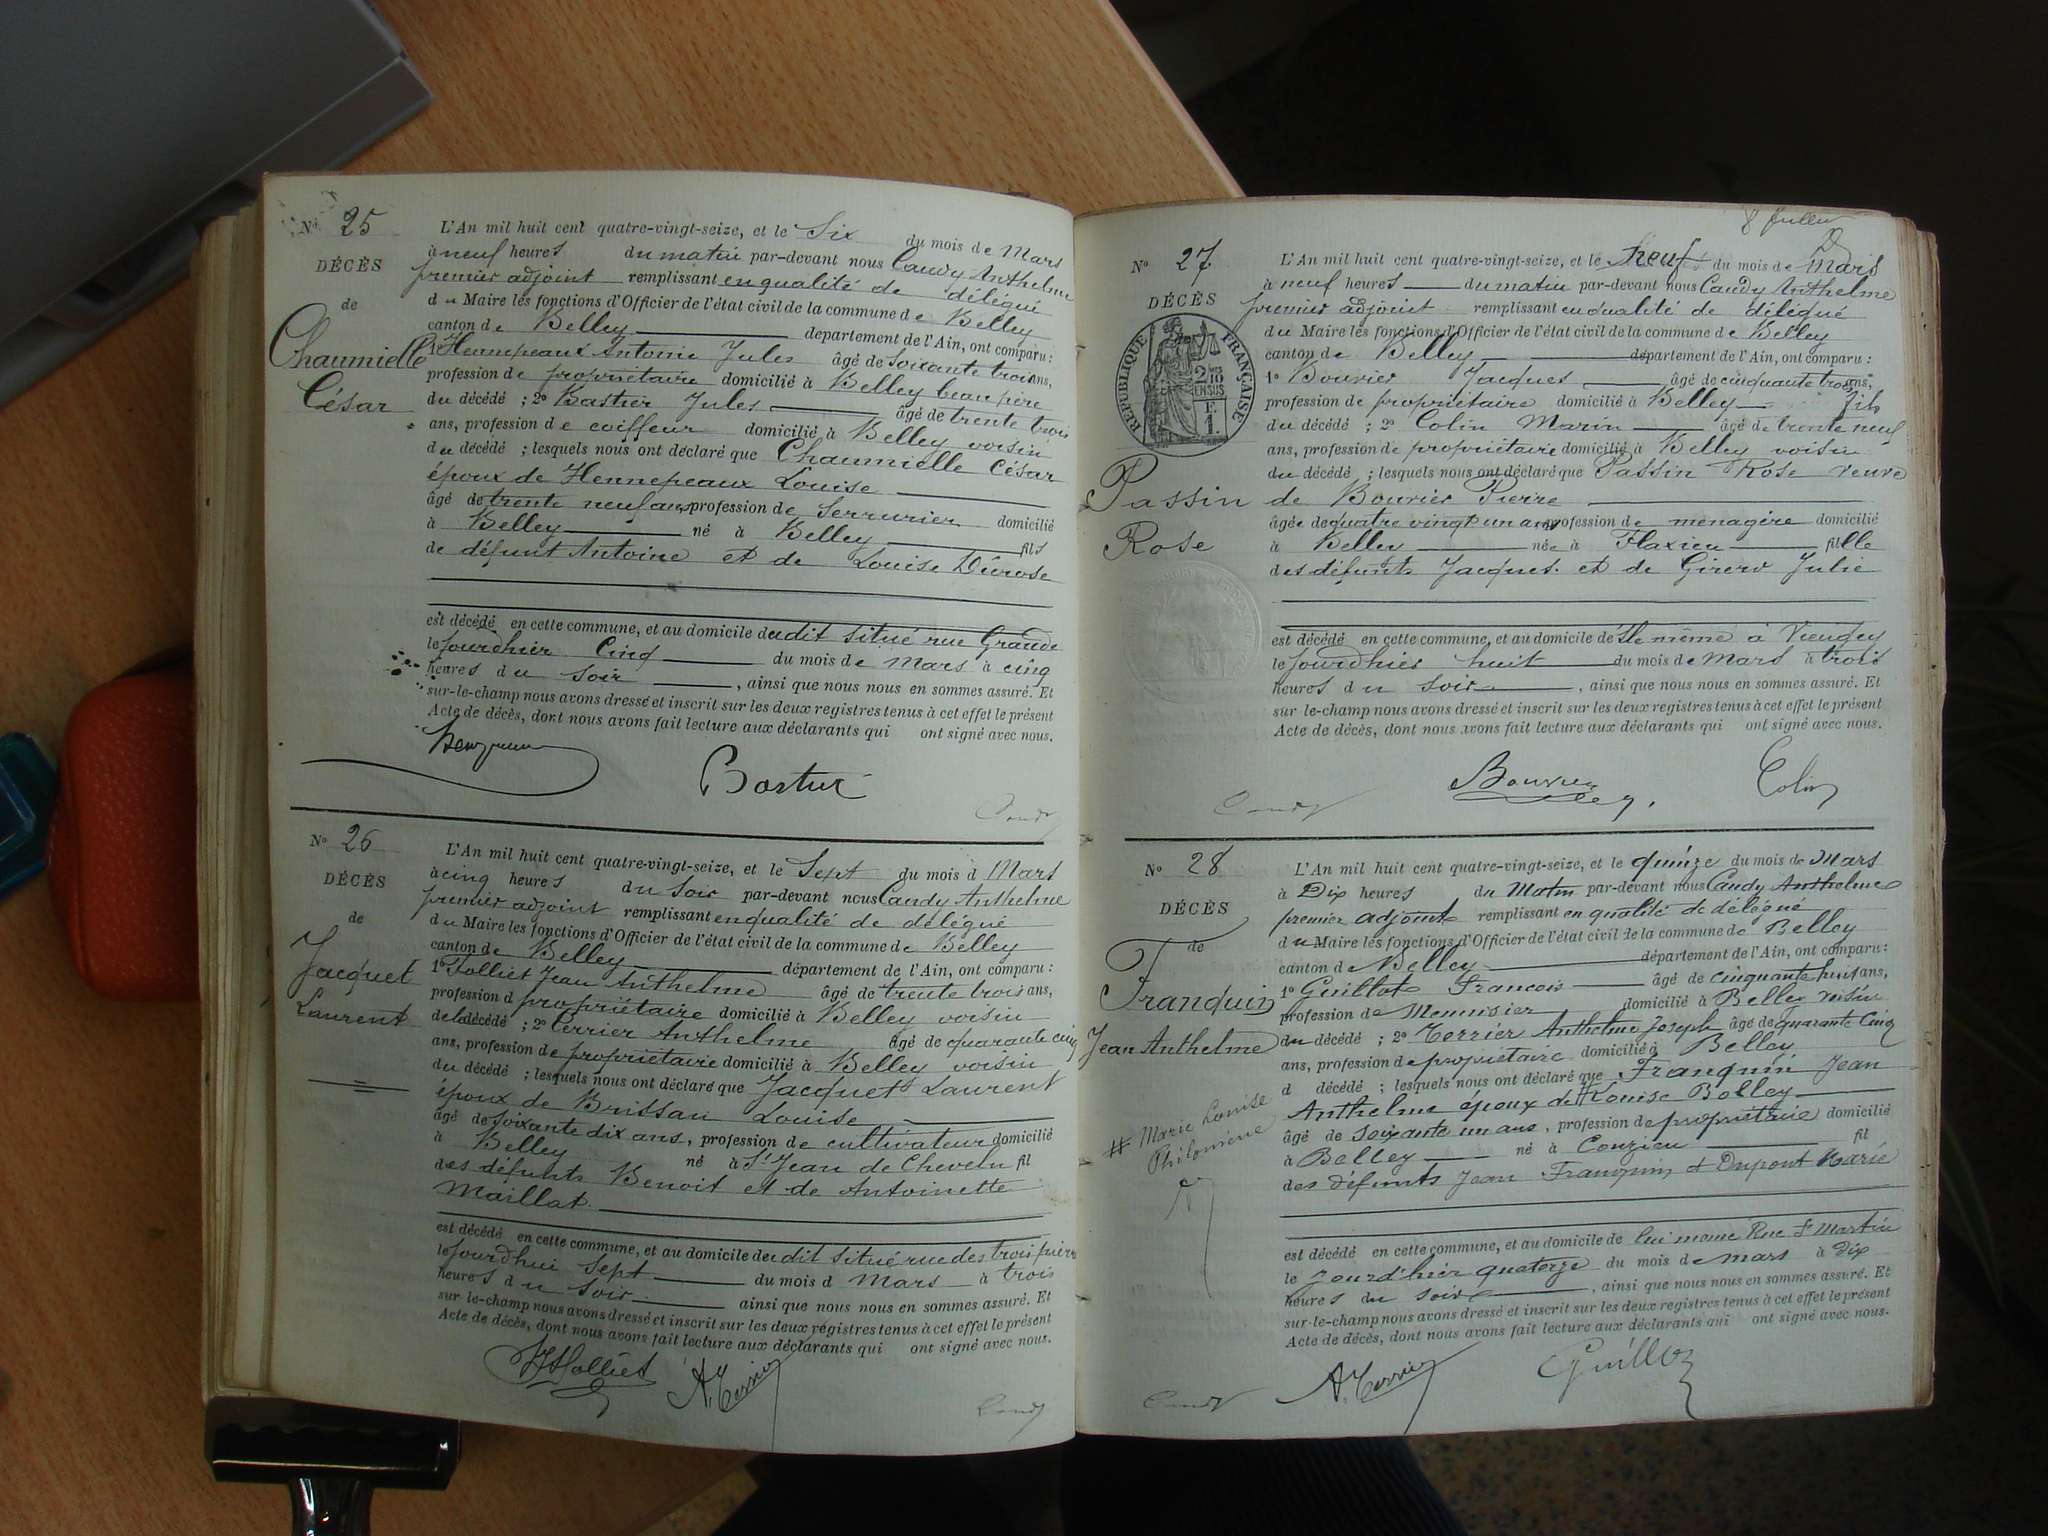 N° 25
DÉCÈS
de
Chaumielle
César
L'An mil huit cent quatre-vingt-seize, et le Six du mois de Mars
à neuf heures du matin par-devant nous Caudy Anthelme
premier adjoint remplissant en qualité de délégué
du Maire les fonctions d'Officier de l'état civil de la commune de Belley
canton de Belley département de l'Ain, ont comparu :
1° Hennepeaux Antonie Jules âgé de soixante trois ans,
profession de propriétaire domicilié à Belley beau père
du décédé ; 2° Bastier Jules âgé de trente trois
ans, profession de coiffeur domicilié à Belley voisin
du décédé ; lesquels nous ont déclaré que Chaumielle César
époux de Hennepeaux Louise
âgé de trente neuf ans, profession de Serrurier domicilié
à Belley né à Belley fils
de défunt Antoine et de Louise
est décédé en cette commune, et au domicile dudit situé rue Grande
le jourdhier Cinq du mois de Mars à cinq
heures du soir, ainsi que nous nous en sommes assuré. Et
sur-le-champ nous avons dressé et inscrit sur les deux registres tenus à cet effet le présent
Acte de décès, dont nous avons fait lecture aux déclarants qui ont signé avec nous.
Caudy
N° 26
DÉCÈS
de
Jacquet
Laurent
L'An mil huit cent quatre-vingt-seize, et le Sept du mois d Mars
à cinq heures du soir par-devant nous Caudy Anthelme
premier adjoint remplissant en qualité de délégué
du Maire les fonctions d'Officier de l'état civil de la commune de Belley
canton de Belley département de l'Ain, ont comparu :
1° Folliet Jean Anthelme âgé de trente trois ans,
profession d propriétaire domicilié à Belley voisin
de la décédé ; 2° Terrier Anthelme âgé de quarante cinq
ans, profession de propriétaire domicilié à Belley voisin
du décédé ; lesquels nous ont déclaré que Jacquet Laurent
époux de Brissau Louise
âgé de soixante dix ans, profession de cultivateur domicilié
à Belley né à St Jean de Chevelu fil
des défunts Benoit et de Antoinette
Maillat
est décédé en cette commune, et au domicile dudit situé rue des trois
le jourdhui sept du mois d Mars à trois
heures du soir ainsi que nous nous en sommes assuré. Et
sur-le-champ nous avons dressé et inscrit sur les deux registres tenus à cet effet le présent
Acte de décès, dont nous avons fait lecture aux déclarants qui ont signé avec nous.
Folliet A. Terrier
Caudy
N° 27
DÉCÈS
RÉPUBLIQUE FRANÇAISE
2/10 EN SUS
F. 1.
Passin
Rose
L'An mil huit cent quatre-vingt-seize, et le neuf du mois de Mars
à neuf heures du matin par-devant nous Caudy Anthelme
premier adjoint remplissant en qualité de délégué
du Maire les fonctions d'Officier de l'état civil de la commune de Belley
canton de Belley département de l'Ain, ont comparu :
1° Bouvier Jacques âgé de cinquante trois ans,
profession de propriétaire domicilié à Belley fils
du décédé ; 2° Colin Marin âgé de trente neuf
ans, profession de propriétaire domicilié à Belley voisin
du décédé ; lesquels nous ont déclaré que Passin Rose veuve
de Bouvier Pierre
âgée de quatre vingt un ans, profession de ménagère domicilié
à Belley née à Flaxieu fille
des défunts Jacques et de Girerd Julie
est décédé en cette commune, et au domicile d'elle même à
le jourdhier huit du mois de Mars à trois
heures du soir, ainsi que nous nous en sommes assuré. Et
sur-le-champ nous avons dressé et inscrit sur les deux registres tenus à cet effet le présent
Acte de décès, dont nous avons fait lecture aux déclarants qui ont signé avec nous.
Caudy Bouvier Colin
N° 28
DÉCÈS
de
Franquin
Jean Anthelme
# Marie Louise
Philomène
L'An mil huit cent quatre-vingt-seize, et le quinze du mois de Mars
à Dix heures du Matin par-devant nous Caudy Anthelme
premier adjoint remplissant en qualité de délégué
du Maire les fonctions d'Officier de l'état civil de la commune de Belley
canton de Belley département de l'Ain, ont comparu :
1° Guillot François âgé de cinquante huit ans,
profession de Menuisier domicilié à Belley voisin
du décédé ; 2° Terrier Anthelme Joseph âgé de quarante Cinq
ans, profession de propriétaire domicilié à Belley
d décédé ; lesquels nous ont déclaré que Franquin Jean
Anthelme époux de # Louise Bolley
âgé de soixante un ans, profession de propriétaire domicilié
à Belley né à Conzieu fil
des défunts Jean Franquin et Dupont Marie
est décédé en cette commune, et au domicile de lui meme Rue St Martin
le jourd'hier quatorze du mois de mars à dix
heures du soir, ainsi que nous nous en sommes assuré. Et
sur-le-champ nous avons dressé et inscrit sur les deux registres tenus à cet effet le présent
Acte de décès, dont nous avons fait lecture aux déclarants qui ont signé avec nous.
Caudy A. Terrier Guillot